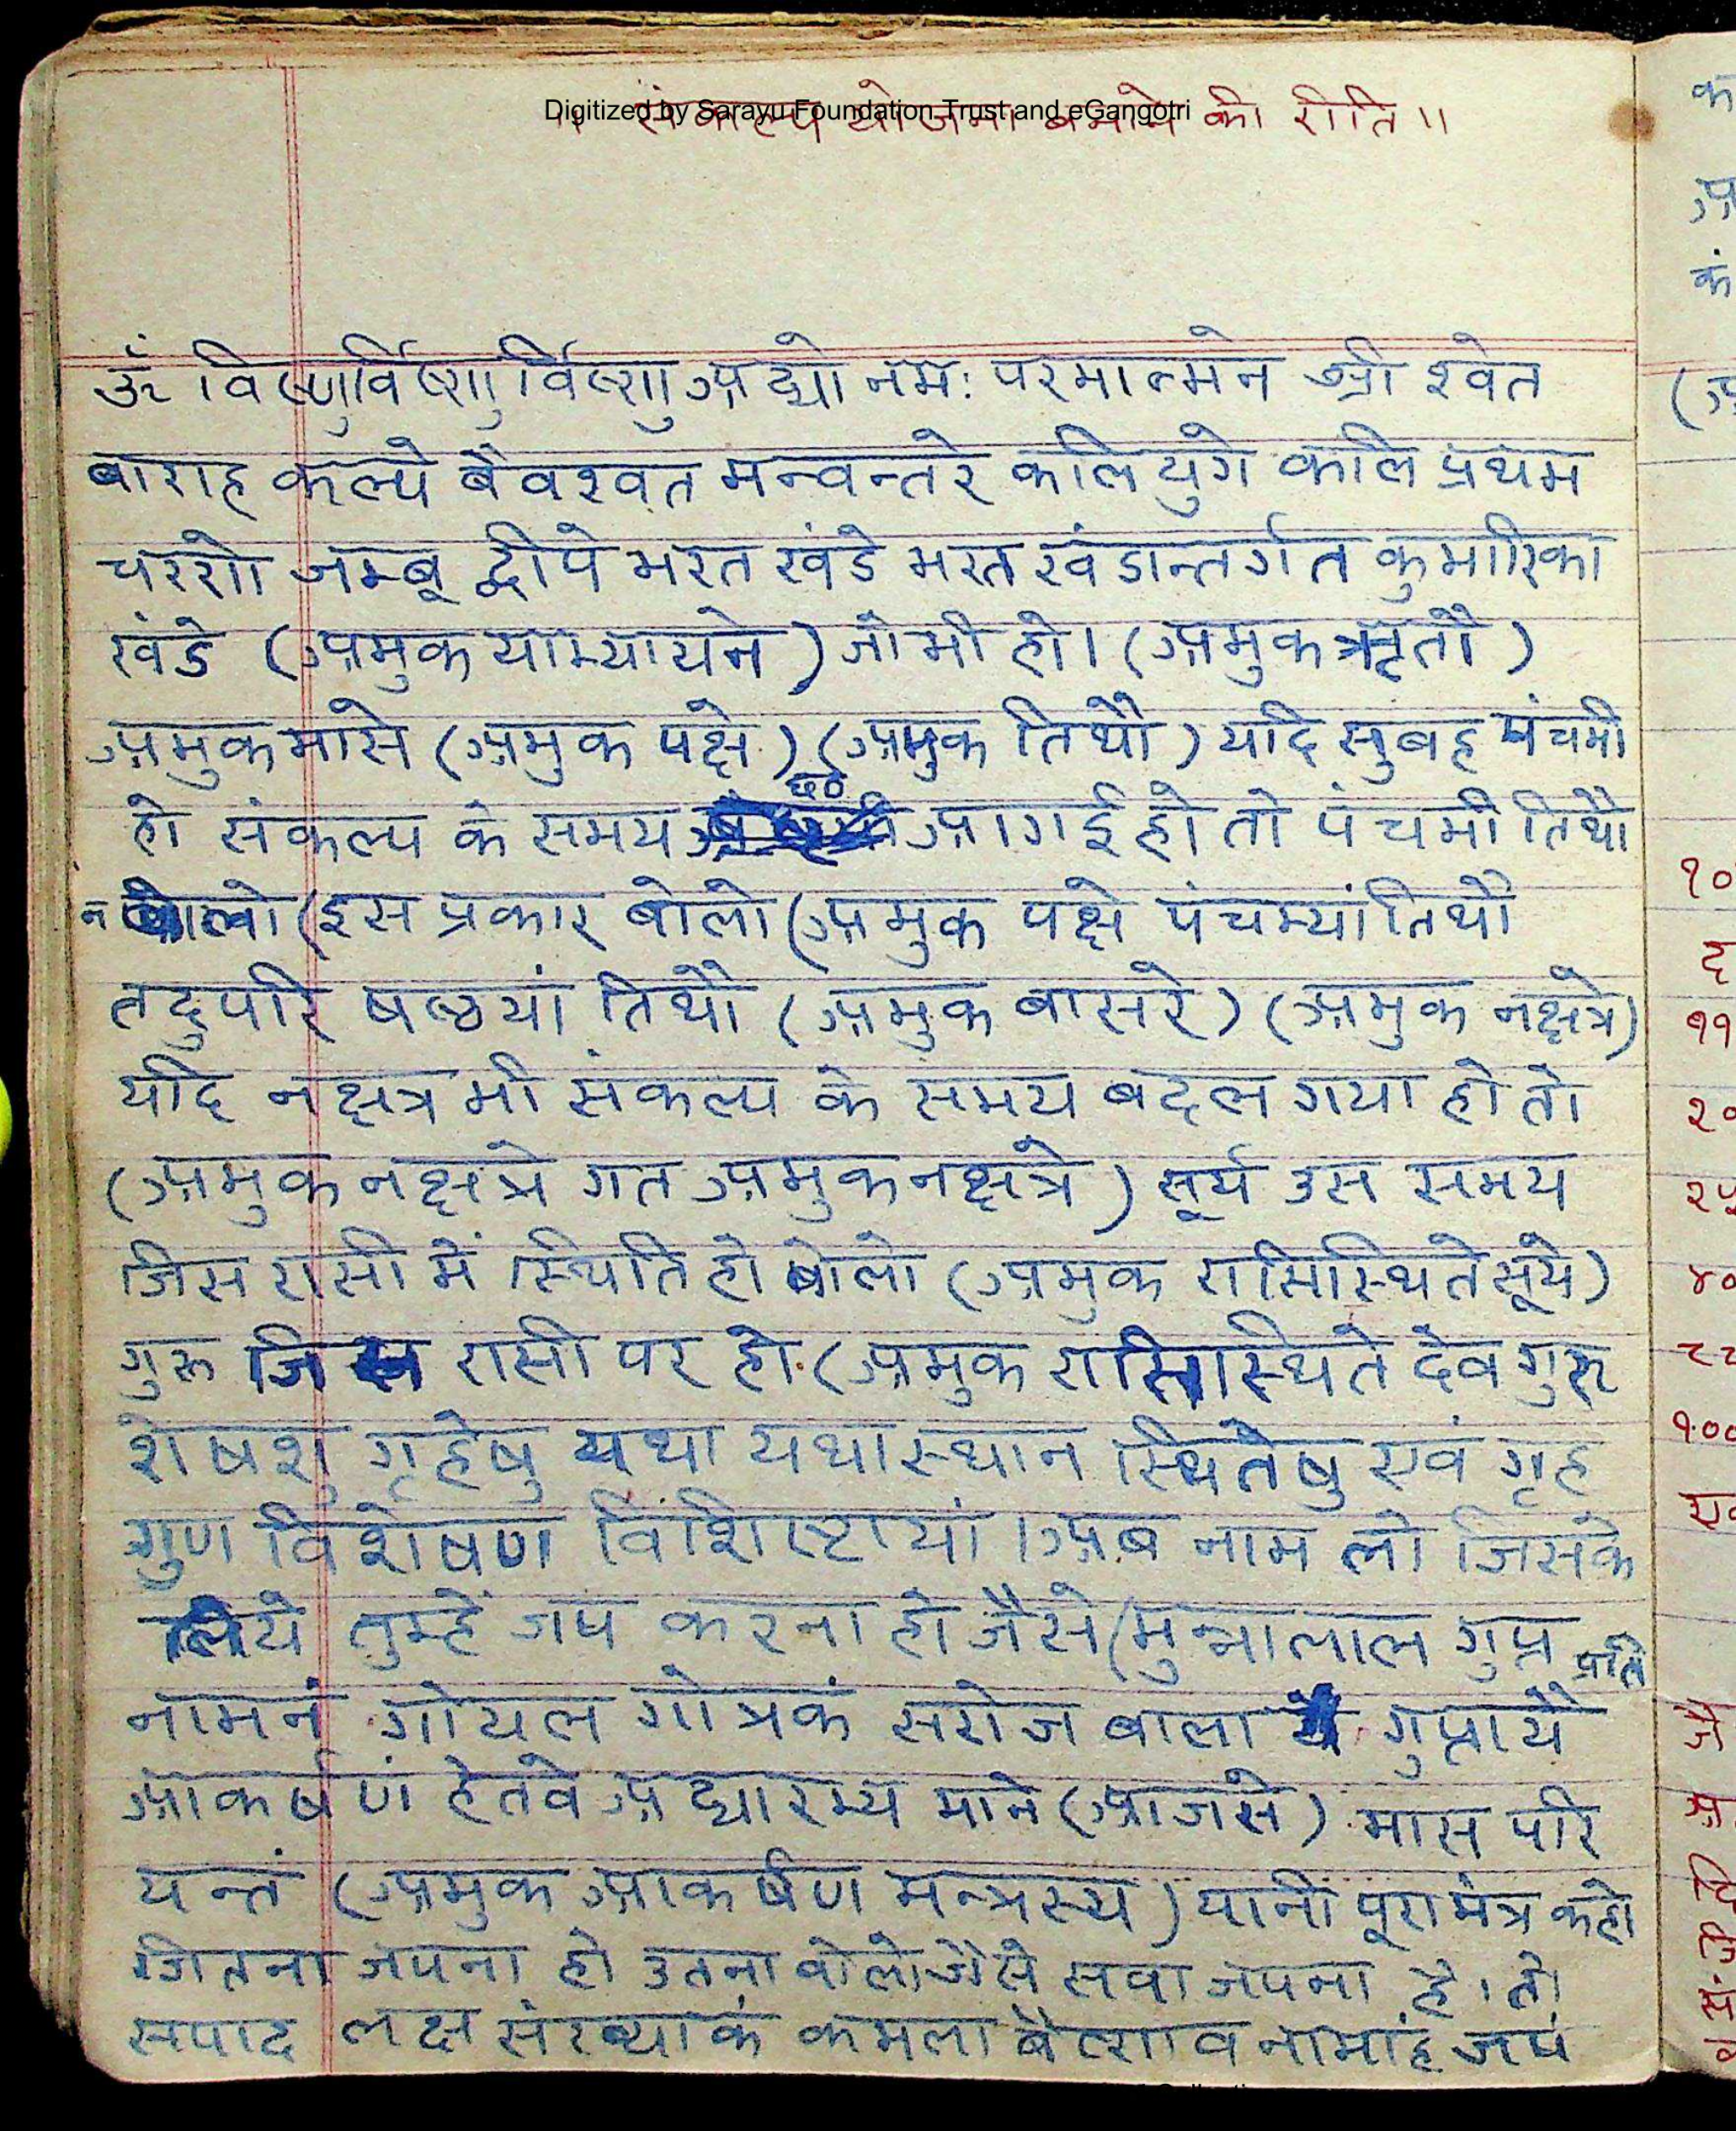 Digitized by Sarayu Foundation Trust and eGangotri
॥ संकल्प योजना बनाने की रीति ॥
ॐ विष्णुर्विष्णुर्विष्णु अद्यो नमः परमात्मने श्री श्वेत
बाराह कल्पे बैवश्वत मन्वन्तरे कलियुगे कलि प्रथम
चरणे जम्बू द्वीपे भरत खंडे भरत खंडान्तर्गत कुमारिका
खंडे (अमुक याम्यायने) जो भी हो। (अमुक ऋृतौ)
अमुक मासे (अमुक पक्षे) (अमुक तिथौ) यदि सुबह पंचमी
हो संकल्प के समय छठ आ गई हो तो पंचमी तिथौ
न बोलो (इस प्रकार बोलो (अमुक पक्षे पंचम्यां तिथौ
तदुपरि षष्ठयां तिथौ (अमुक बासरे) (अमुक नक्षत्रे)
यदि नक्षत्र भी संकल्प के समय बदल गया हो तो
(अमुक नक्षत्रे गत अमुक नक्षत्रे) सूर्य उस समय
जिस रासी में स्थिति हो बोलो (अमुक रासिस्थिते सूर्ये)
गुरू जिस रासी पर हो (अमुक रासिस्थिते देव गुरू
शेषशु गृहेषु यथा यथास्थान स्थितेषु एवं गृह
गुण विशेषण विशिष्टायां । अब नाम लो जिसके
लिये तुम्हें जप करना हो जैसे (मुन्नालाल गुप्त प्रति
नामनं गोयल गोत्रकं सरोज बाला गुप्तायै
आकर्षणं हेतवे अद्यारभ्य माने (आज से) मास परि
यन्तं (अमुक आकर्षण मन्त्रस्य) यानी पूरा मंत्र कहो
जितना जपना हो उतना बोलो जैसे सवा जपना है। तो
सपाद लक्ष संख्याकं कमला बैष्णव नामांह जपं